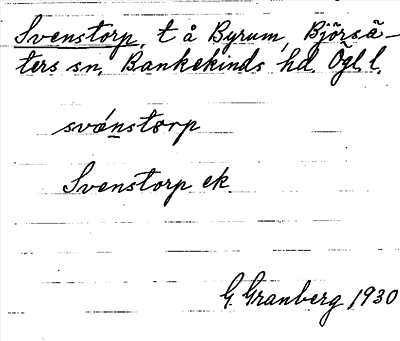 Svenstorp, t å Byrum, Björsä-
ters sn, Bankekinds hd. Ögl l.
svénstorp
Svenstorp ek.
G. Granberg 1930